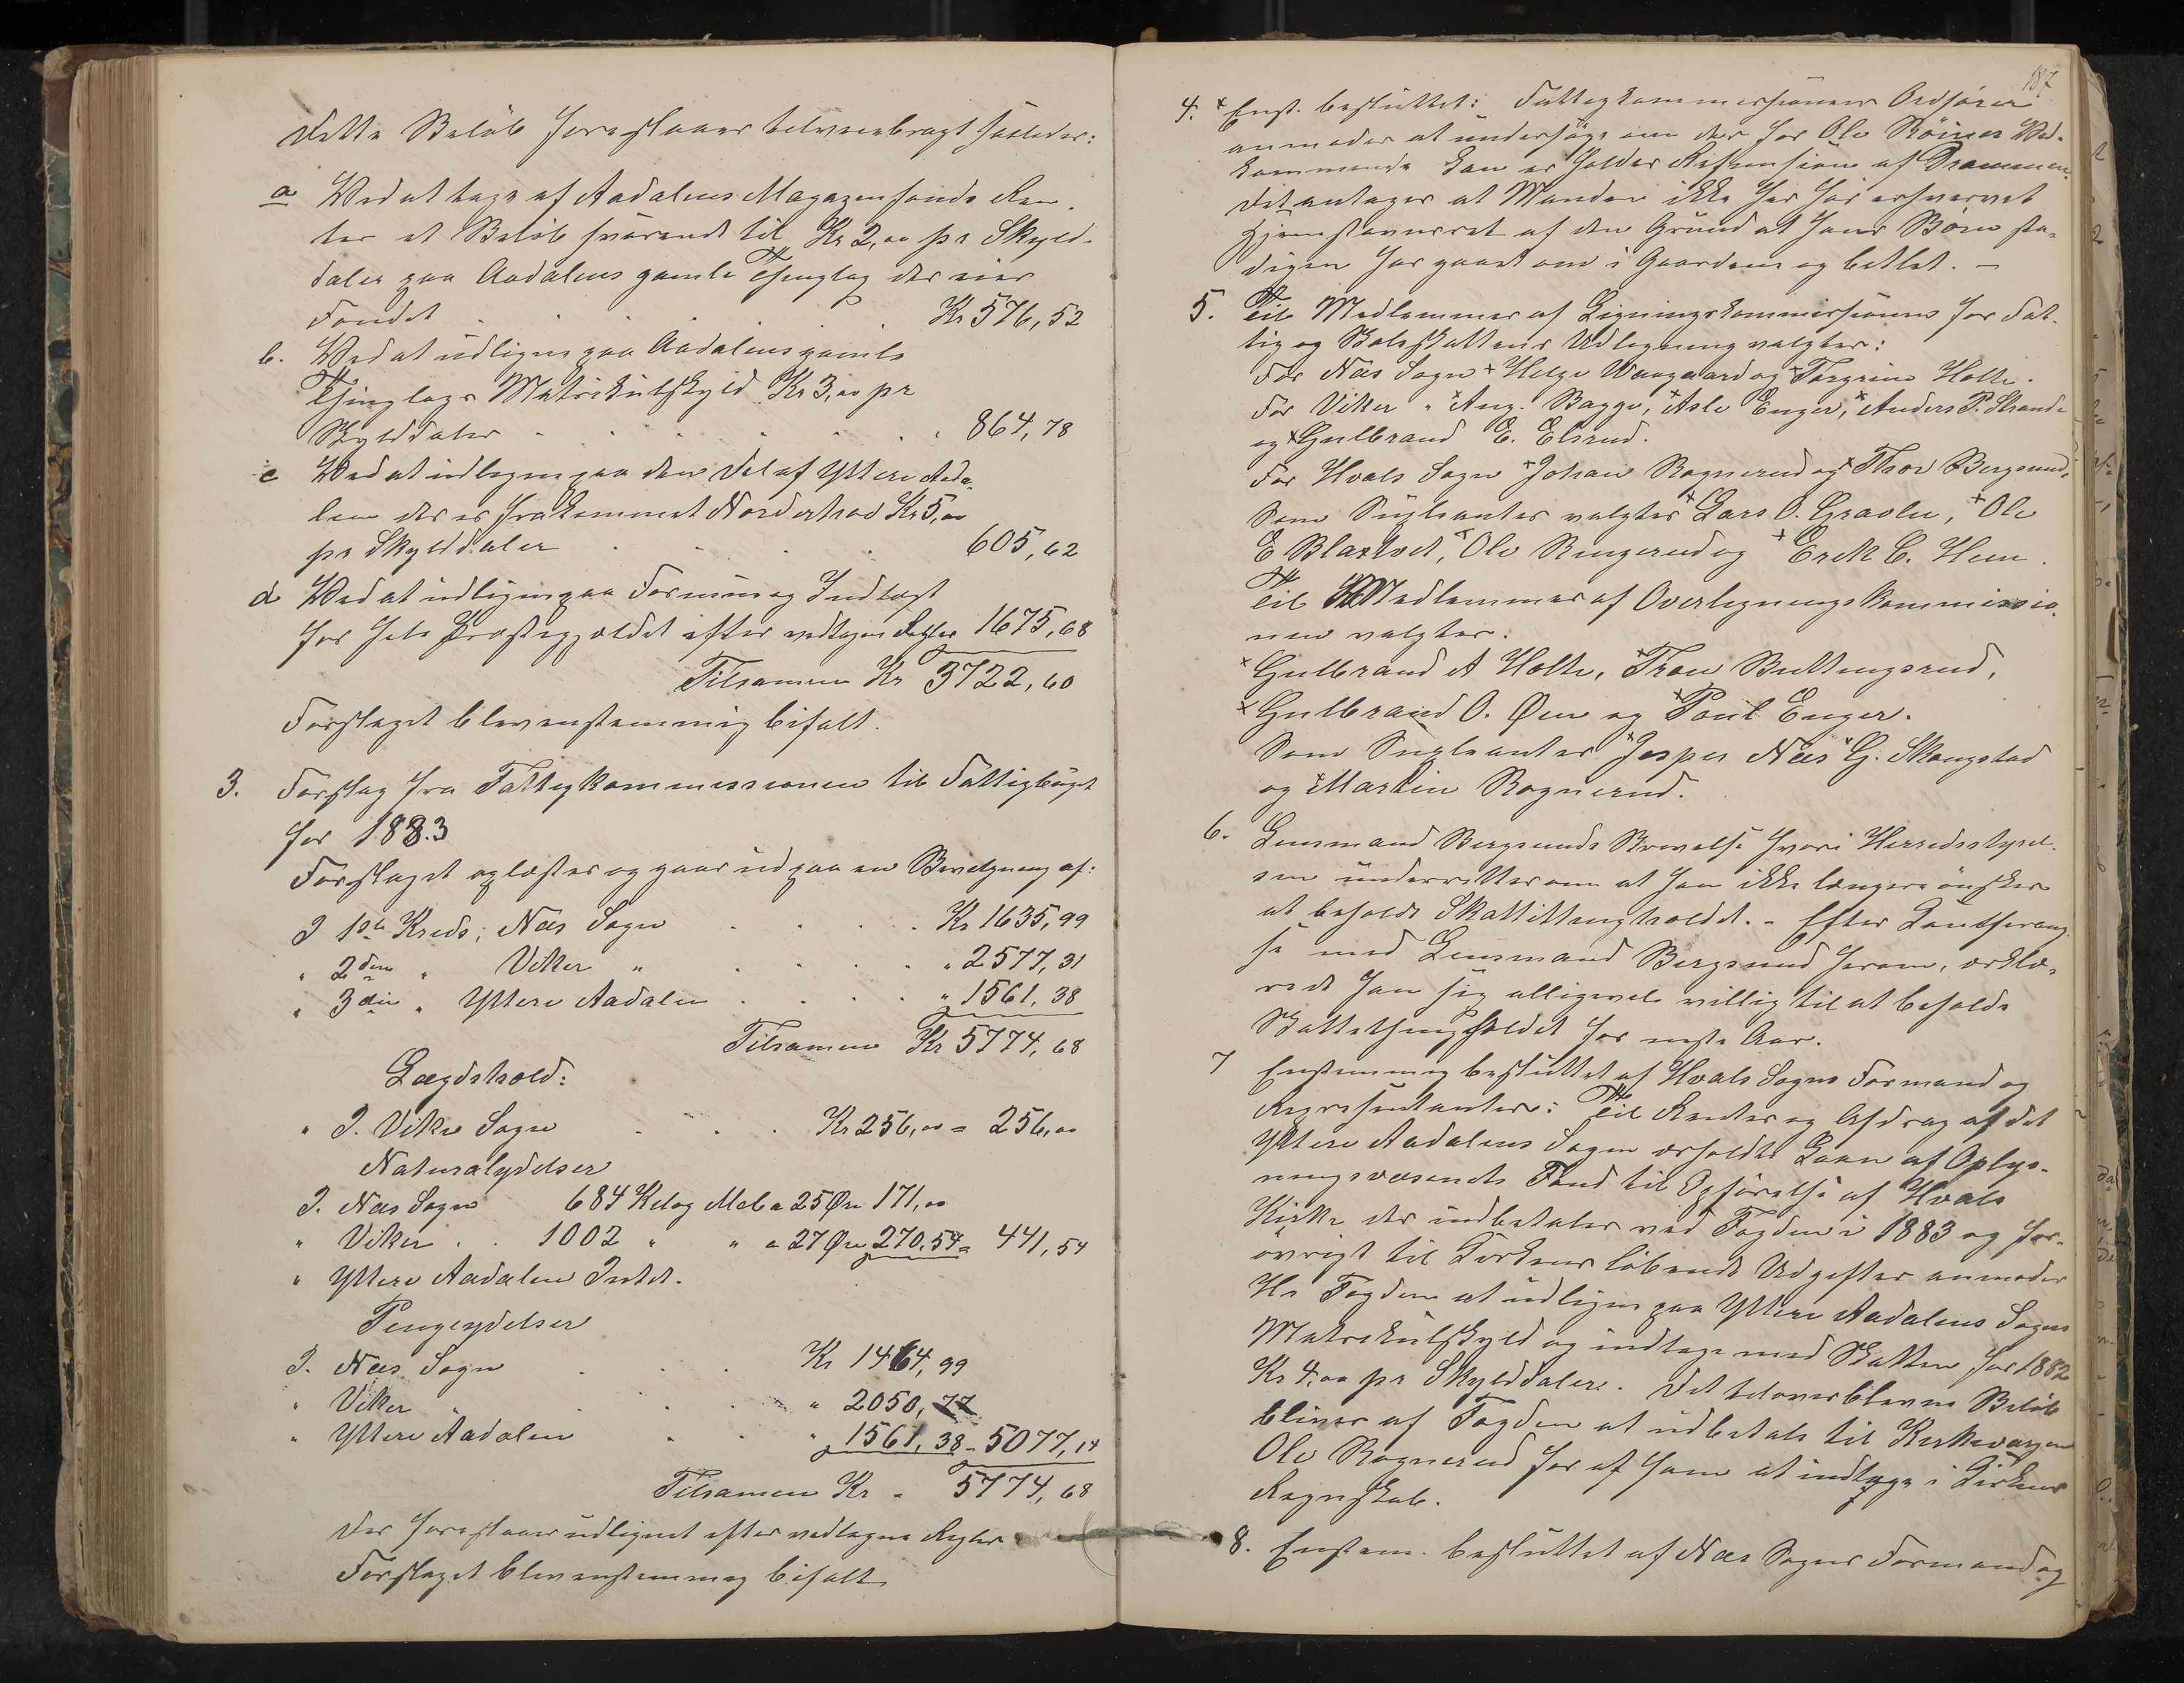 Dette Beløb foreslaaes tilveiebragt saaledes:
a Ved at tage af Aadalens Magazinfonds Ren-
ter et Beløb svarende til Kr 2,00 pr Skyld-
daler paa Aadalens gamle Thinglag der eier
Fondet . . . . . Kr 576,52
b. Ved at udligne paa Aadalens gamle
Thinglags Matrikulskyld Kr 3,00 pr
Skylddaler . . . . . " 864,78
c Ved at udligne paa den Del af Ytere Aada-
len der er frakommet Norderhov Kr 5,00
pr Skylddaler . . . . 605,62
d Ved at udligne paa Formue og Indtægt
for hele Præstegjældet efter vedtagne Regler 1675,68
Tilsamen Kr 3722,60
Forslaget blev enstemmig bifalt.
3. Forslag fra Fattigkommissionen til Fattigbuget
for 1883
Forslaget oplæstes og gaar ud paa en Bevilgning af:
I 1ste Kreds, Næs Sogn . . . . Kr 1635,99
" 2den " Viker " . . . . " 2577,31
" 3die " Ytere Aadalen . . . . " 1561,38
Tilsamen Kr 5774,68
Lægdshold:
" I. Viker Sogn . . . Kr 256,00 = 256,00
Naturalydelser
I. Næs Sogn 684 Kilog Mel a 25 Øre 171,00
" Viker . . 1002 " " a 27 Øre 270,54 = 441,54
" Ytere Aadalen Intet.
Pengeydelser
I. Næs Sogn . . . Kr 1464,99
" Viker . . . " 2050,77
" Ytere Aadalen . . " 1561,38 - 5077,14
Tilsamen Kr - 5774,68
der foreslaaes udlignet efter vedtagne Regler
Forslaget blev enstemmig bifalt
187
4. x Enst. besluttet: Fattigkommissionens Ordfører
anmodes at undersøge om der for Ole Ved-
kommende kan erholdes Refusion af Drammen.
Det antages at Manden ikke her har erhvervet
Hjemstavnsret af den Grund at hans Børn sta-
digen har gaaet om i Gaardene og betlet. —
5. Til Medlemmer af Ligningskommissionen for Fat-
tig og Skolskattens Udligning valgtes:
For Næs Sogn x Helge Waagaard og x Torgrim Holte.
For Viker " x Aug. Bagge, x Asle Enger, x Anders P. Strande
og x Gulbrand E. Elsrud.
For Hvals Sogn x Johan Rognerud og x Thor Bergsund.
Som Supleanter valgtes x Lars O. Graslie, x Ole
E Blaxtvet, x Ole Ringerud og x Erik C. Heen.
Til Medlemmer af Overligningskommissio-
nen valgtes:
x Gulbrand A Holte, x Tron Buttingsrud,
x Gulbrand O. Øen og x Paul Enger.
Som Supleanter x Jesper Næs x G. Skougstad
og x Martin Rognerud.
6. Lensmand Bergsunds Skrivelse hvori Herredsstyrel-
sen underrettes om at han ikke længere ønsker
at beholde Skattethingholdet. - Efter Konferan-
se med Lensmand Bergsund herom, erklæ-
rede han sig alligevel villig til at beholde
Skattethingholdet for neste Aar.
7 Enstemmig besluttet af Hvals Sogns Formænd og
Repræsentanter: Til Renter og Afdrag af det
Ytere Aadalens Sogn erholdte Laan af Oplys-
ningsvæsenets Fond til Opførelse af Hvals
Kirke der indbetales ved Fogden i 1883 og for-
øvrigt til Kirkens løbende Udgifter anmodes
Hr Fogden at udligne paa Ytere Aadalens Sogns
Matrikulskyld og indtage med Skatten for 1882
Kr 4,00 pr Skylddaler. Det tiloversblevne Beløb
bliver af Fogden at udbetale til Kirkevergen
Ole Rognerud for af ham at indtages i Kirkens
Regnskab.
8. Enstem. besluttet af Næs Sogns Formænd og